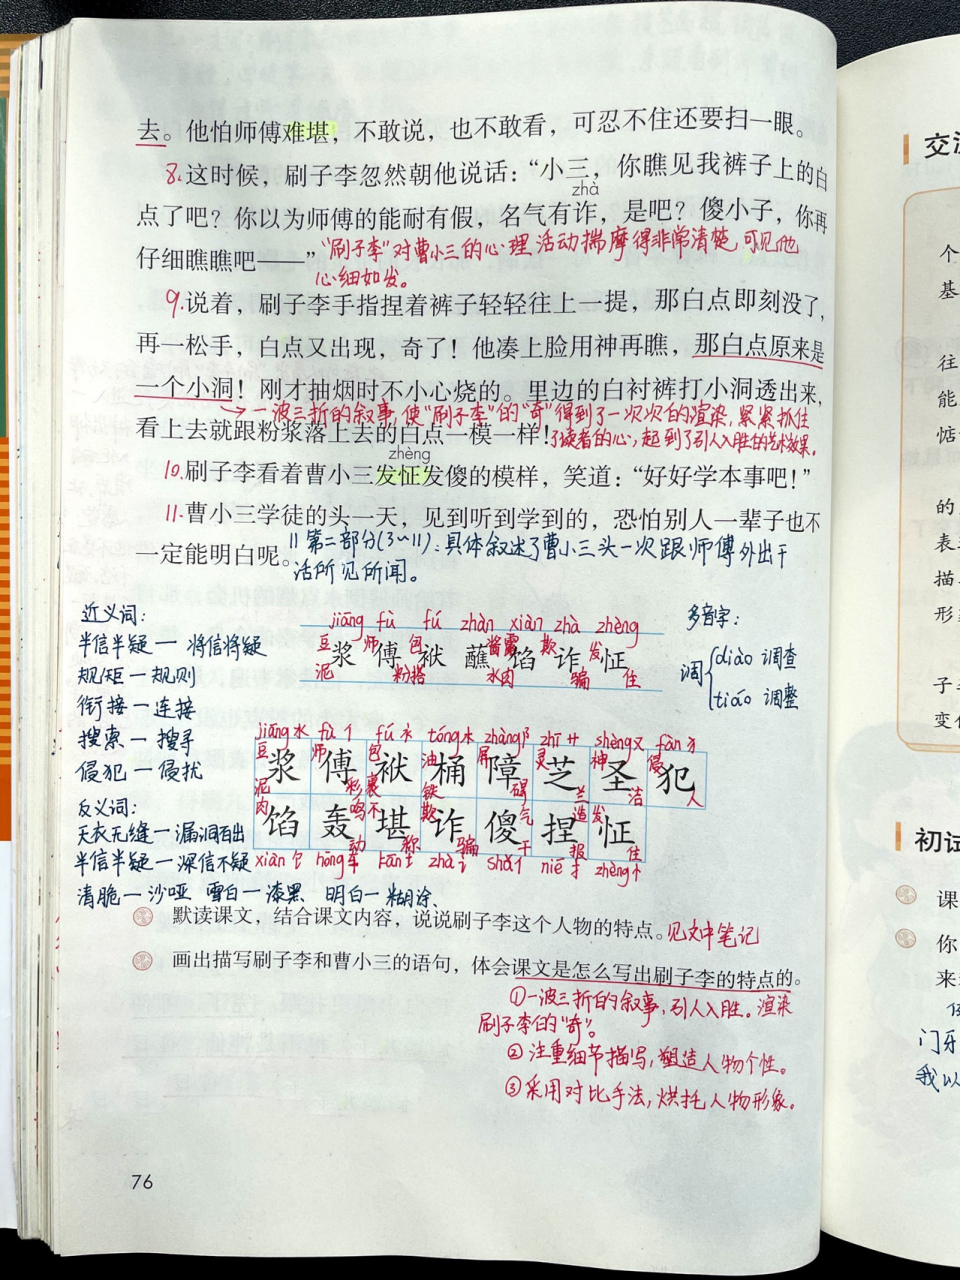 去。他怕师傅难堪，不敢说，也不敢看，可忍不住还要扫一眼。
8.这时候，刷子李忽然朝他说话：“小三，你瞧见我裤子上的白
zhà
点了吧？你以为师傅的能耐有假，名气有诈，是吧？傻小子，你再
仔细瞧瞧吧——”
“刷子李”对曹小三的心理活动揣摩得非常清楚，可见他
心细如发。
9.说着，刷子李手指捏着裤子轻轻往上一提，那白点即刻没了，
再一松手，白点又出现，奇了！他凑上脸用神再瞧，那白点原来是
一个小洞！刚才抽烟时不小心烧的。里边的白衬裤打小洞透出来，
→一波三折的叙事，使“刷子李”的“奇”得到了一次次的渲染，紧紧抓住
了读者的心，起到了引人入胜的艺术效果。
看上去就跟粉浆落上去的白点一模一样！
zhèng
10.刷子李看着曹小三发怔发傻的模样，笑道：“好好学本事吧！”
11.曹小三学徒的头一天，见到听到学到的，恐怕别人一辈子也不
一定能明白呢。
‖第二部分(3~11)：具体叙述了曹小三头一次跟师傅外出干
活所见所闻。
近义词：
半信半疑—将信将疑
规矩—规则
衔接—连接
搜索—搜寻
侵犯—侵扰
反义词：
天衣无缝—漏洞百出
半信半疑—深信不疑
清脆—沙哑 雪白—漆黑 明白—糊涂
jiāng fù fú zhàn xiàn zhà zhèng
豆 师 包 欺 发
浆 傅 袱 蘸 馅 诈 怔
泥 粉 水肉 骗 住
多音字：
调 diào 调查
tiáo 调整
jiāng水 fù亻 fú衤 tǒng木 zhàng阝 zhī艹 shèng又 fàn犭
豆 师 包 油 屏 灵 神 侵
浆 傅 袱 桶 障 芝 圣 犯
泥 彩 裹 铁 碍 兰 洁 人
肉 鸣 不 欺 气 造 发
馅 轰 堪 诈 傻 捏 怔
动 称 骗 干 报 住
xiàn饣 hōng车 kān土 zhà讠 shǎ亻 niē扌 zhèng忄
默读课文，结合课文内容，说说刷子李这个人物的特点。见文中笔记
画出描写刷子李和曹小三的语句，体会课文是怎么写出刷子李的特点的。
①一波三折的叙事，引人入胜。渲染
刷子李的“奇”。
②注重细节描写，塑造人物个性。
③采用对比手法，烘托人物形象。
76
个
基
往
能
惦
的
表
描
形
子
变
初试
课
你
来
门牙
我以